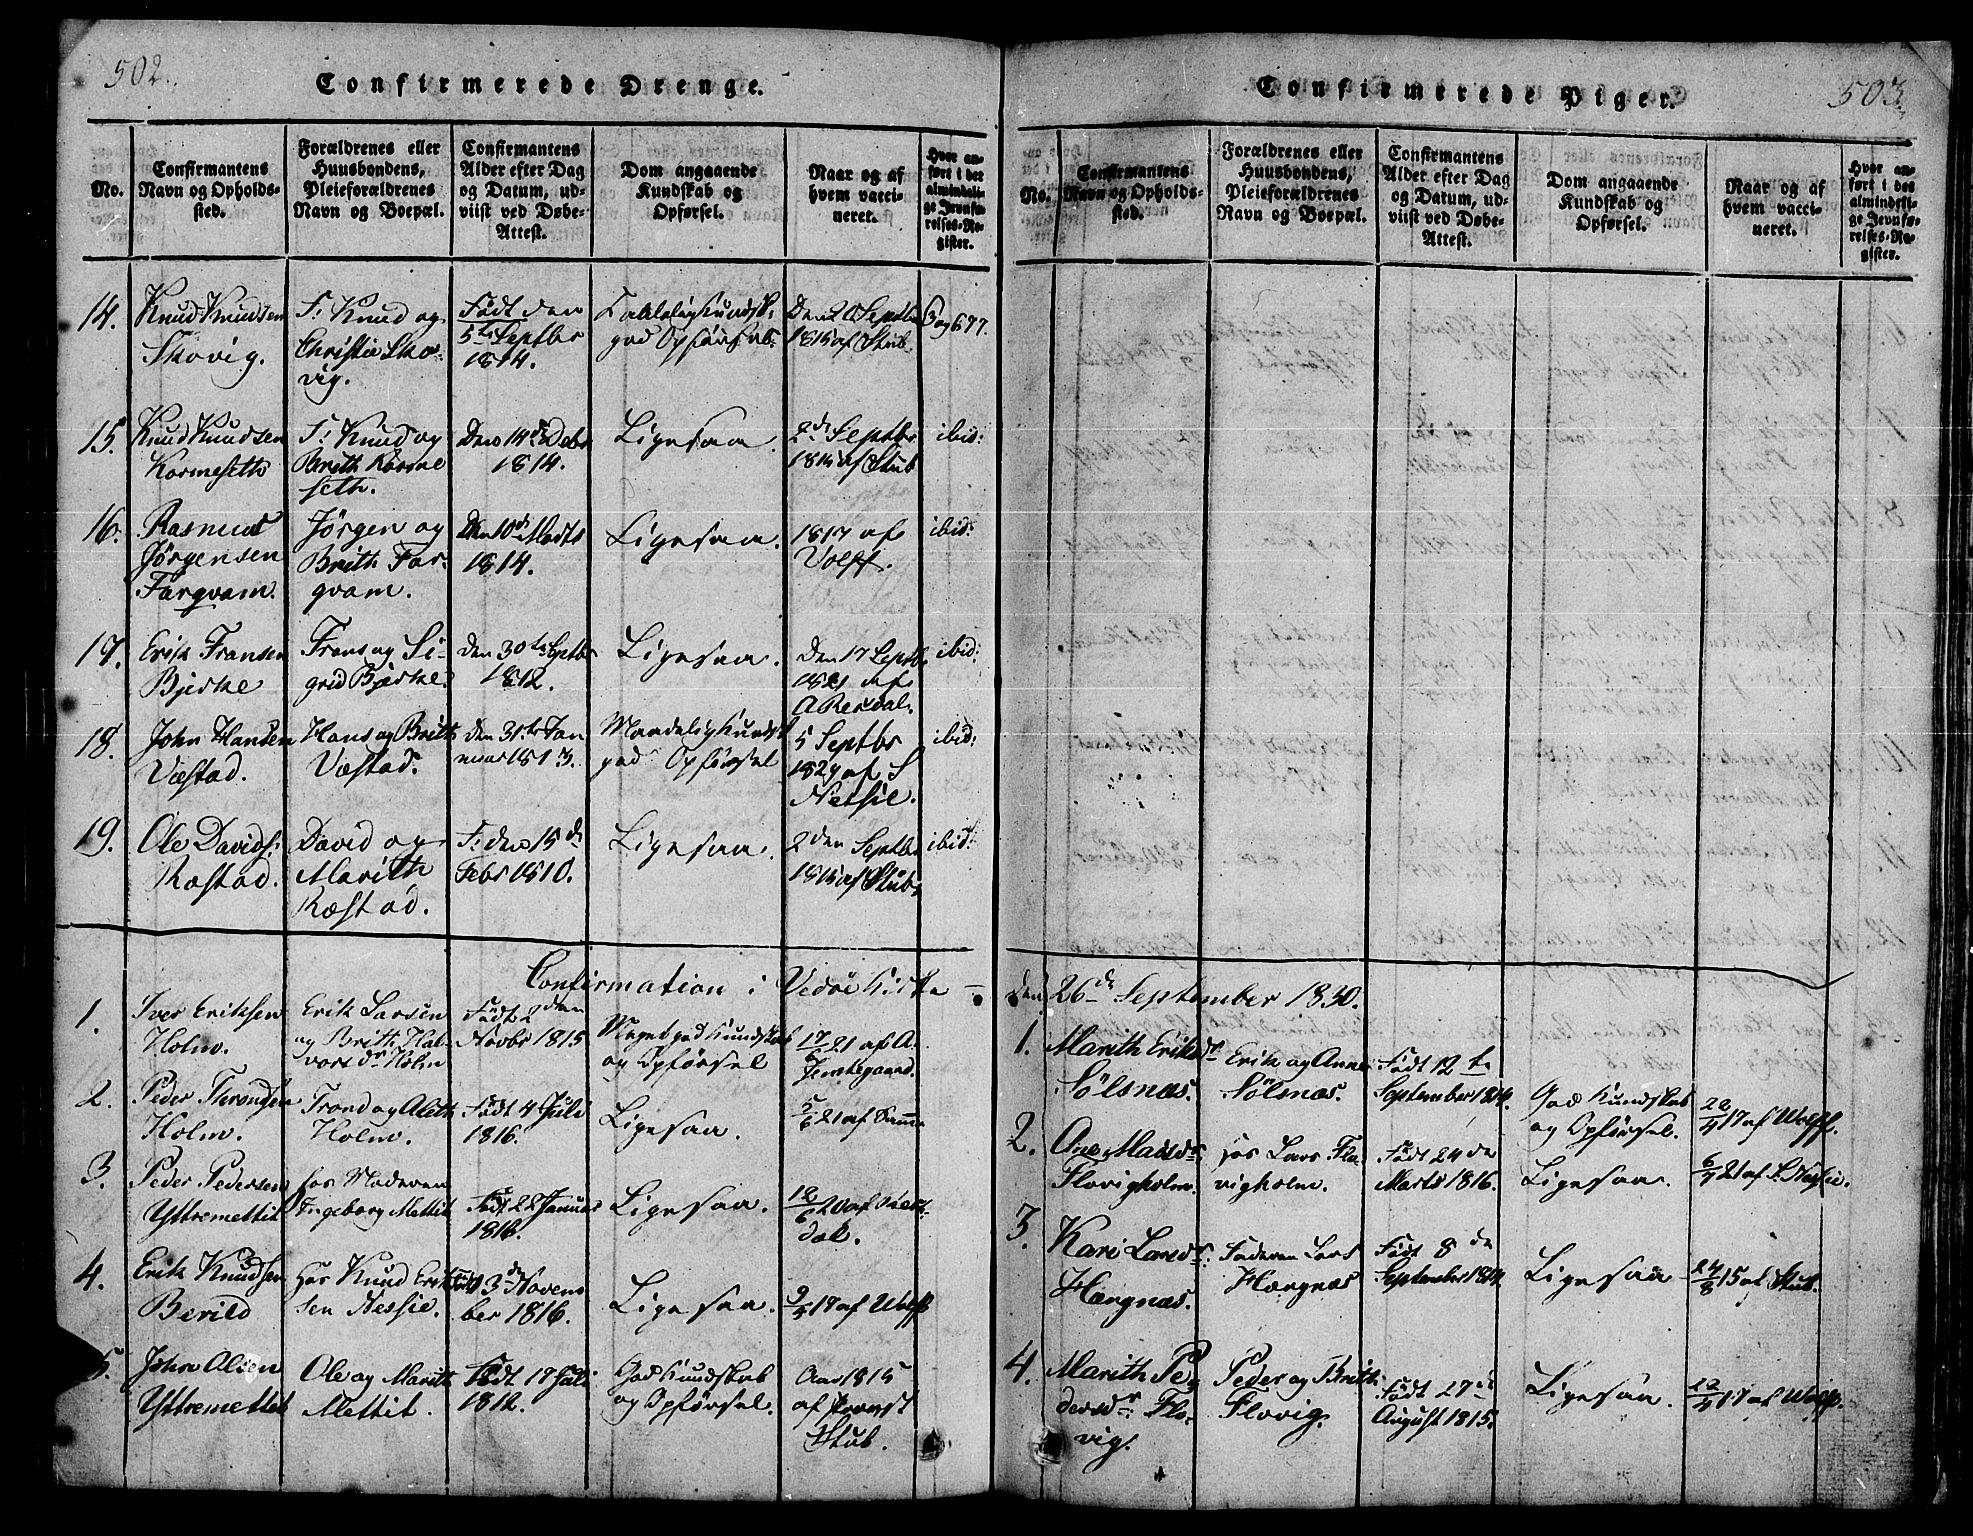 502.
Confirmerede Drenge.
No.
Confirmantens
Navn og Opholds-
sted.
Forældrenes eller
Huusbondens,
Pleieforældrenes
Navn og Boepæl.
Confirmantens
Alder efter Dag
og Datum, ud-
viist ved Døbe-
Attest.
Dom angaaende
Kundskab og
Opførsel.
Naar og af
hvem vacci-
neret.
Hvor an-
ført i det
almindeli-
ge Jevnfø-
relses-Re-
gister.
14.
Knud Knudsen
Skovig.
F: Knud og
Christie Sko-
vig.
Født den
5te Septbr
1814.
Taalelig Kundsk:
god Opførsel
Den 20 Septbr
1815 af Stub
Pag 677.
15.
Knud Knudsen
Kormeseth
F: Knud og
Brith Korme
seth.
Den 14de Debr
1814.
Ligesaa.
2de Septbr
1815 af Stub
ibid:
16.
Rasmus
Jörgensen
Fargvam.
Jörgen og
Brith Far-
gvam.
Den 10de Marts
1814.
Ligesaa.
1817 af
Volff.
ibid:
17.
Erik Fransen
Bjerke
Frans og Si-
grid Bjerke.
den 30te Septbr
1812.
Ligesaa.
Den 17 Septbr
1821 af
A Rerdal.
ibid:
18.
John Hansen
Væstad.
Hans og Brith
Væstad.
den 31te Jan
nuar 1813.
Maadelig Kundsk
god Opförsel
5 Septbr
1829 af S
Nersie.
ibid:
19.
Ole Davids:
Røstad.
David og
Marith
Røstad.
F: den 15de
Febr 1810.
Ligesaa.
2den Septbr
1815 af Stub
ibid:
Confirmation i Vedöe Kirke -
1.
Iver Eriksen
Holm.
Erik Larsen
og Brith Hal-
vorsdr Holm
Födt 2den
Novbr 1815
Meget god Kundskab
og Opförsel
17/6 21 af A.
Jemtegaard.
2.
Peder Throndsen
Holm.
Trond og Aleth
Holm.
Födt 4 Juli
1816.
Ligesaa.
5/6 21 af Samme
3.
Peder Pedersen
Yttremettit
hos Moderen
Ingeborg Mettit
Födt 22 Januar
1816.
Ligesaa.
12/6 20 af
dal.
4.
Erik Knudsen
Berild
hos Knud Erik
sen Nessie.
Födt 3de Novem
ber 1816.
Ligesaa.
9/5 17 af Wolff
5.
John Olsen
Yttremettit
Ole og Marith
Mettit.
Födt 17 Juli
1812.
God Kundskab
og Opförsel.
Aar 1815
af Provst
Stub.
503.
Confirmerede Piger.
No.
Confirmantens
Navn og Opholds-
sted.
Forældrenes eller
Huusbondens,
Pleieforældrenes
Navn og Boepæl.
Confirmantens
Alder efter Dag
og Datum, ud-
viist ved Døbe-
Attest.
Dom angaaende
Kundskab og
Opførsel.
Naar og af
hvem vacci-
neret.
Hvor an-
ført i det
almindeli-
ge Jevnfø-
relses-Re-
gister.
Den 26de September 1830.
1.
Marith Eriksdr
Sölsnæs.
Erik og Anne
Sölsnæs.
Födt 12te
September 1814.
God Kundskab
og Opförsel.
28/4 17 af Wolff.
2.
Ane Madsdr:
Flovigholm.
hos Lars Flo-
vigholm.
Födt 24de
Marts 1816.
Ligesaa.
6/7 21 af S. Nessie.
3.
Kari Larsdr:
Hærgnæs.
Faderen Lars
Hærgnæs
Födt 8de
September 1814
Ligesaa
24/8 15 af Stub.
4.
Marith Pe-
dersdr: Flo-
vig.
Peder og Brith
Flovig.
Födt 27de
August 1815.
Ligesaa.
23/4 17 af Wolff.